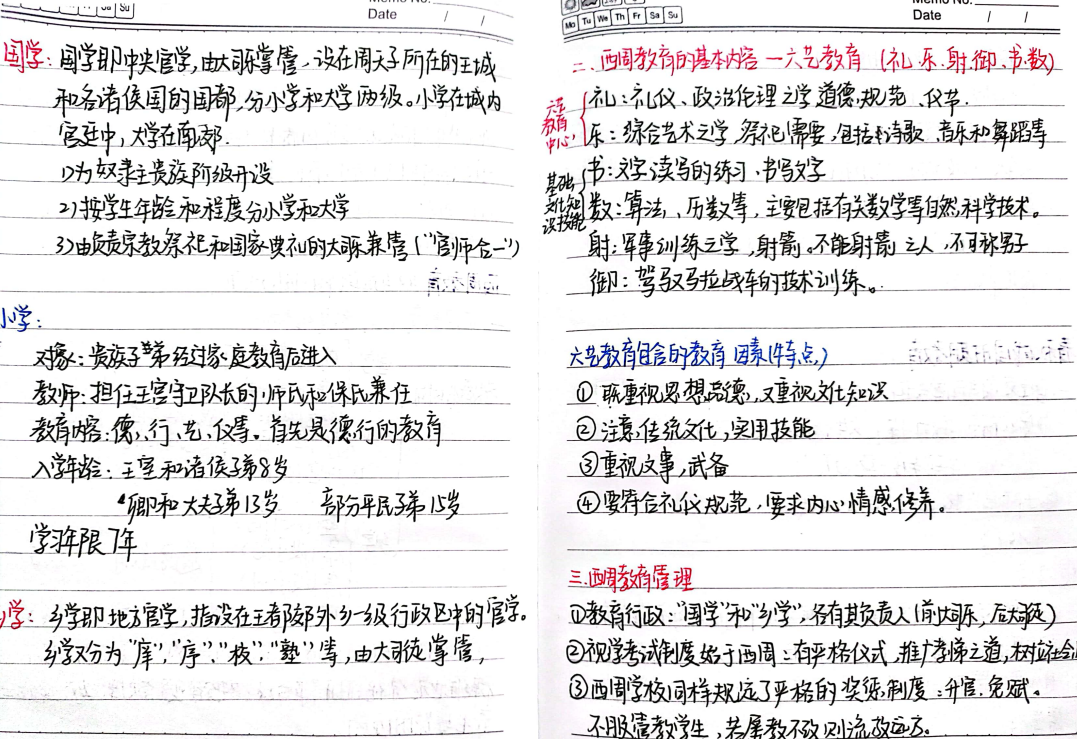 Su Su
Memo No.
Date / /
国学: 国学即中央官学,由大司乐掌管,设在周天子所在的王城
和各诸侯国的国都,分小学和大学两级。小学在城内
宫廷中,大学在南郊.
1)为奴隶主贵族阶级开设
2)按学生年龄和程度分小学和大学
3)由负责宗教祭祀和国家典礼的大司乐兼管("官师合一")
小学:
对象:贵族子弟经过家庭教育后进入
教师:担任王宫守卫队长的师氏和保氏兼任
教育内容:德、行、艺、仪等。首先是德行的教育
入学年龄:王室和诸侯子弟8岁
卿和大夫子弟13岁 部分平民子弟15岁
学习年限7年
学: 乡学即地方官学,指设在王都郊外乡一级行政区中的官学。
乡学又分为"庠","序","校","塾"等,由大司徒掌管,
Memo No.
Mo Tu We Th Fr Sa Su
Date / /
二、西周教育的基本内容一六艺教育(礼.乐.射.御.书.数)
六艺教育中心 礼:礼仪、政治伦理之学 道德规范、仪节.
乐:综合艺术之学,祭祀需要,包括诗歌、音乐和舞蹈等
基础文化知识技能 书:文字读写的练习、书写文字
数:算法、历数等,主要包括有关数学等自然科学技术。
射:军事训练之学,射箭。不能射箭之人,不可称男子
御:驾驭马拉战车的技术训练。
六艺教育包含的教育因素(特点)
① 既重视思想品德,又重视文化知识
② 注意传统文化,实用技能
③重视文事,武备
④要符合礼仪规范,要求内心情感修养。
三.西周教育管理
①教育行政:"国学"和"乡学",各有其负责人(前大司乐,后大司徒)
②视学考试制度始于西周:有严格仪式,推广孝悌之道,树立社会
③西周学校同样规定了严格的奖惩制度:升官.免赋。
不服管教学生,若屡教不改则流放远方。